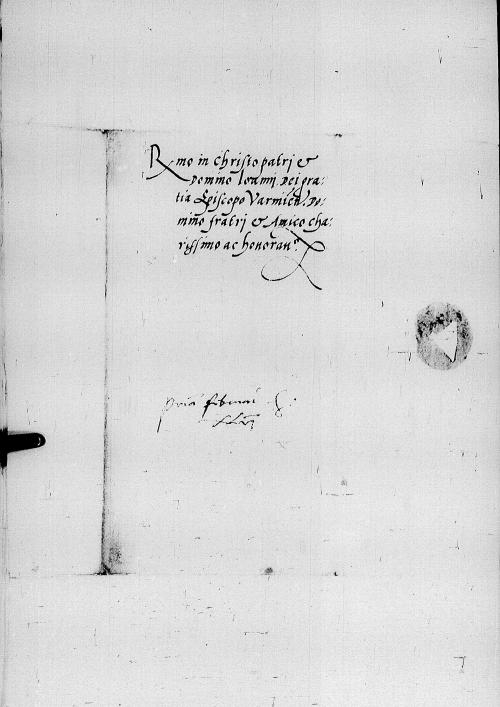 Rmo in Christo patri &
Domino Ioanni Dei gra-
tia Episcopo Varmien. Do-
mino fratri & Amico cha-
rissimo ac honoran.º